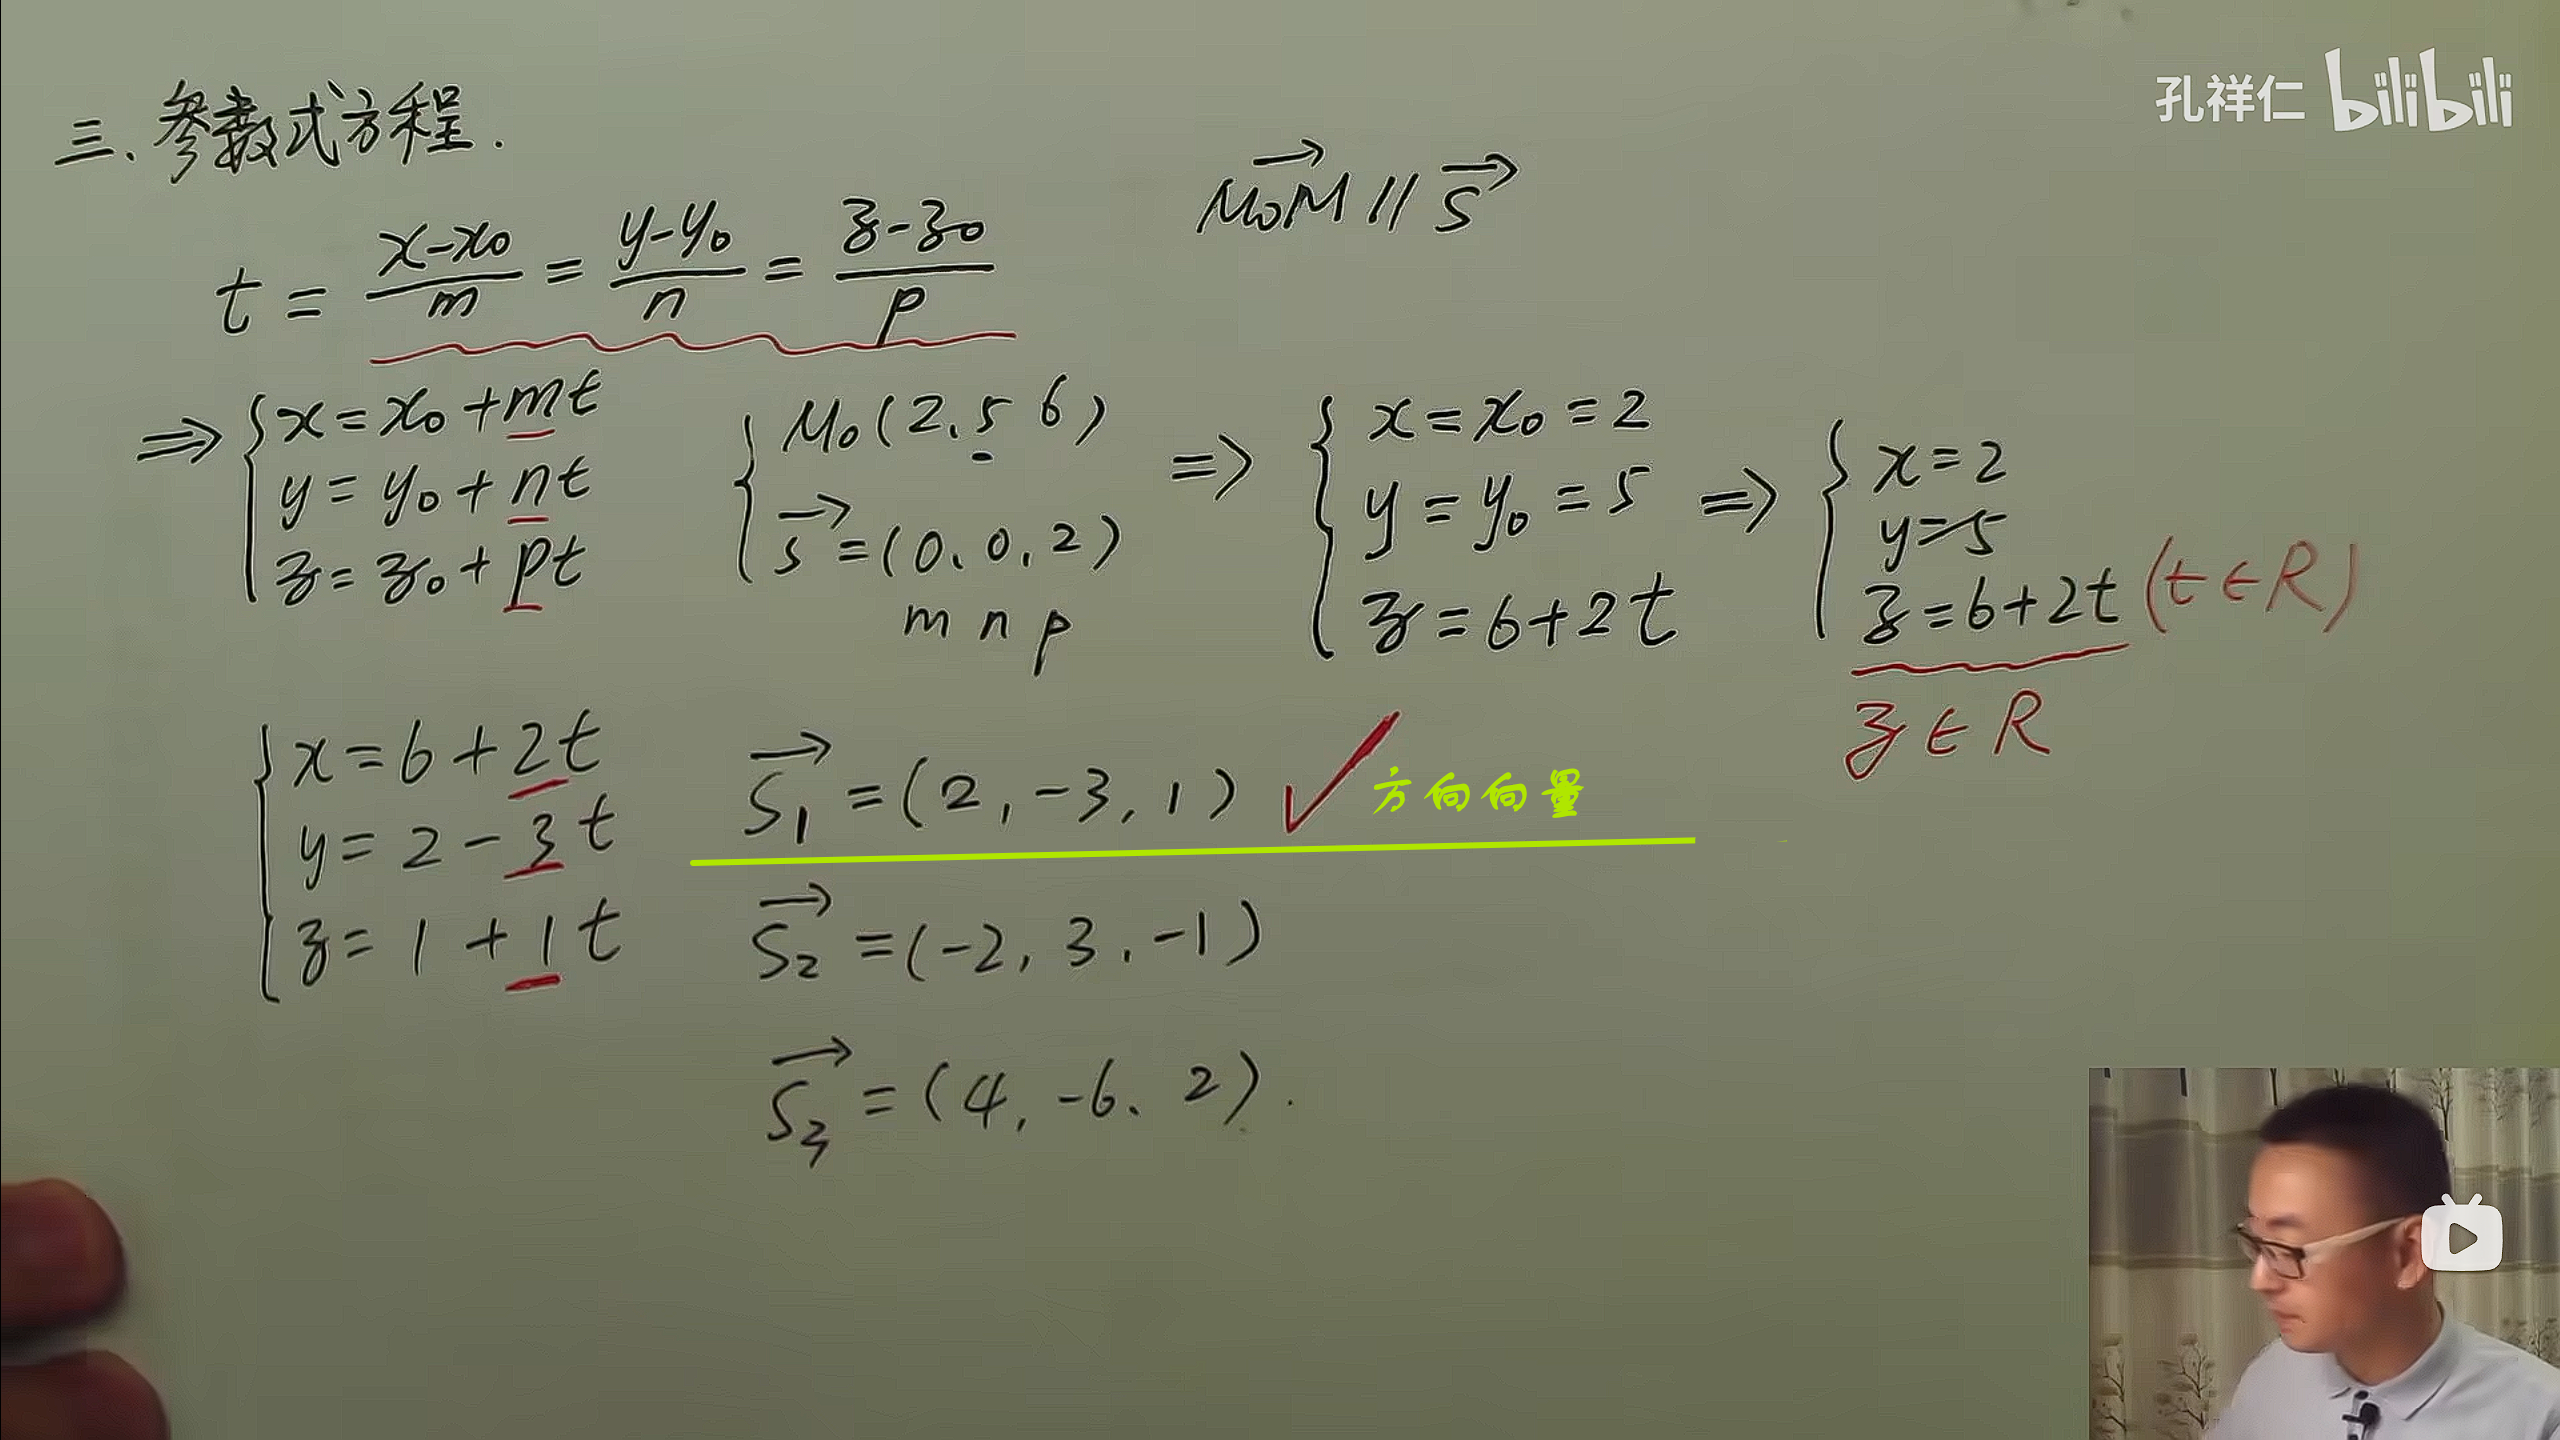 孔祥仁 bilibili
三、参数式方程.
t = \frac{x-x_0}{m} = \frac{y-y_0}{n} = \frac{z-z_0}{p}
\overrightarrow{M_0M} // \overrightarrow{S}
⇒ { x = x_0 + mt
y = y_0 + nt
z = z_0 + pt
{ M_0 (2、5 6)
\overrightarrow{s} = (0、0、2)
m n p
⇒ { x = x_0 = 2
y = y_0 = 5
z = 6+2t
⇒ { x = 2
y = 5
z = 6+2t (t∈R)
z∈R
{ x = 6 + 2t
y = 2 - 3t
z = 1 + 1t
\overrightarrow{S_1} = (2, -3, 1) ✓ 方向向量
\overrightarrow{S_2} = (-2, 3, -1)
\overrightarrow{S_3} = (4, -6、2).